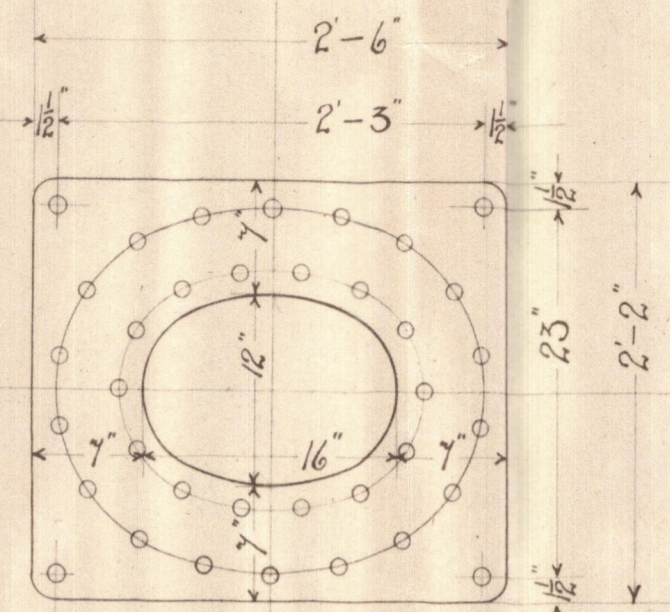 2'-6"
1 1/2" 2'-3" 1 1/2"
1 1/2"
7"
12" 23" 2'-2"
7" 16" 7"
7"
1 1/2"